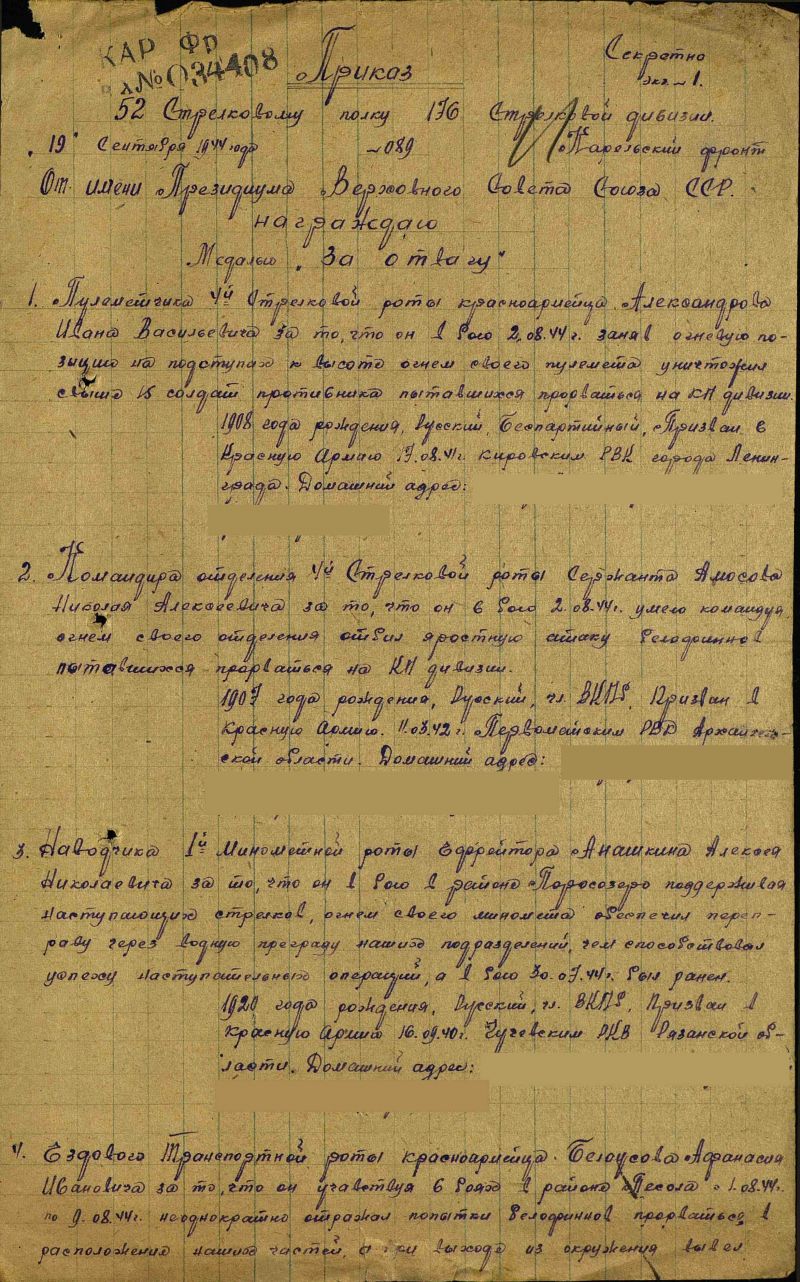 КАР Фр
№ 034408
Секретно
экз. № 1.
Приказ
52 Стрелковому полку 176 Стрелковой дивизии.
"19" Сентября 1944 года №089 Карельский фронт
От имени Президиума Верховного Совета Союза ССР.
награждаю
Медалью "За отвагу"
1. Пулеметчика 4й Стрелковой роты красноармейца Александрова
Ивана Васильевича за то, что он в бою 2.08.44г. заняв огневую по-
зыцию на подступах к высоте огнем своего пулемета уничтожил
свыше 15 солдат противника пытавшихся прорваться на КП дивизии.
1908 года рождения, Русский, Беспартийный, Призван в
Красную Армию 17.08.41г. Кировским РВК города Ленин-
града. Домашний адрес:
2. Командира отделения 4й Стрелковой роты Сержанта Амосова
Николая Алексеевича за то, что он в бою 2.08.44г. умело командуя
огнем своего отделения отбил яростную атаку белофиннов
пытавшихся прорваться на КП дивизии.
1907 года рождения, Русский, чл. ВКПб, Призван в
Красную Армию. 11.03.42г. Первомайским РВК Архангель-
ской области. Домашний адрес:
3. Наводчика 1й Минометной роты Ефрейтора Анашкина Алексея
Николаевича за то, что он в бою в районе Поросозеро поддерживая
наступающих стрелков, огнем своего миномета обеспечил переп-
раву через водную преграду наших подразделений, чем способствовал
успеху наступательных операций, а в бою 30.07.44г. был ранен.
1920 года рождения, Русский, чл. ВКПб, Призван в
Красную Армию 16.09.40г. Чучевским РКВ Рязанской об-
ласти. Домашний адрес:
4. Ездового Транспортной роты красноармейца Белоусова Афанасия
Ивановича за то, что он учавствуя в боях в районе с 1.08.44г.
по 9.08.44г. неоднократно отражал попытки белофиннов прорваться в
расположение наших частей, а при выходе из окружения вывел